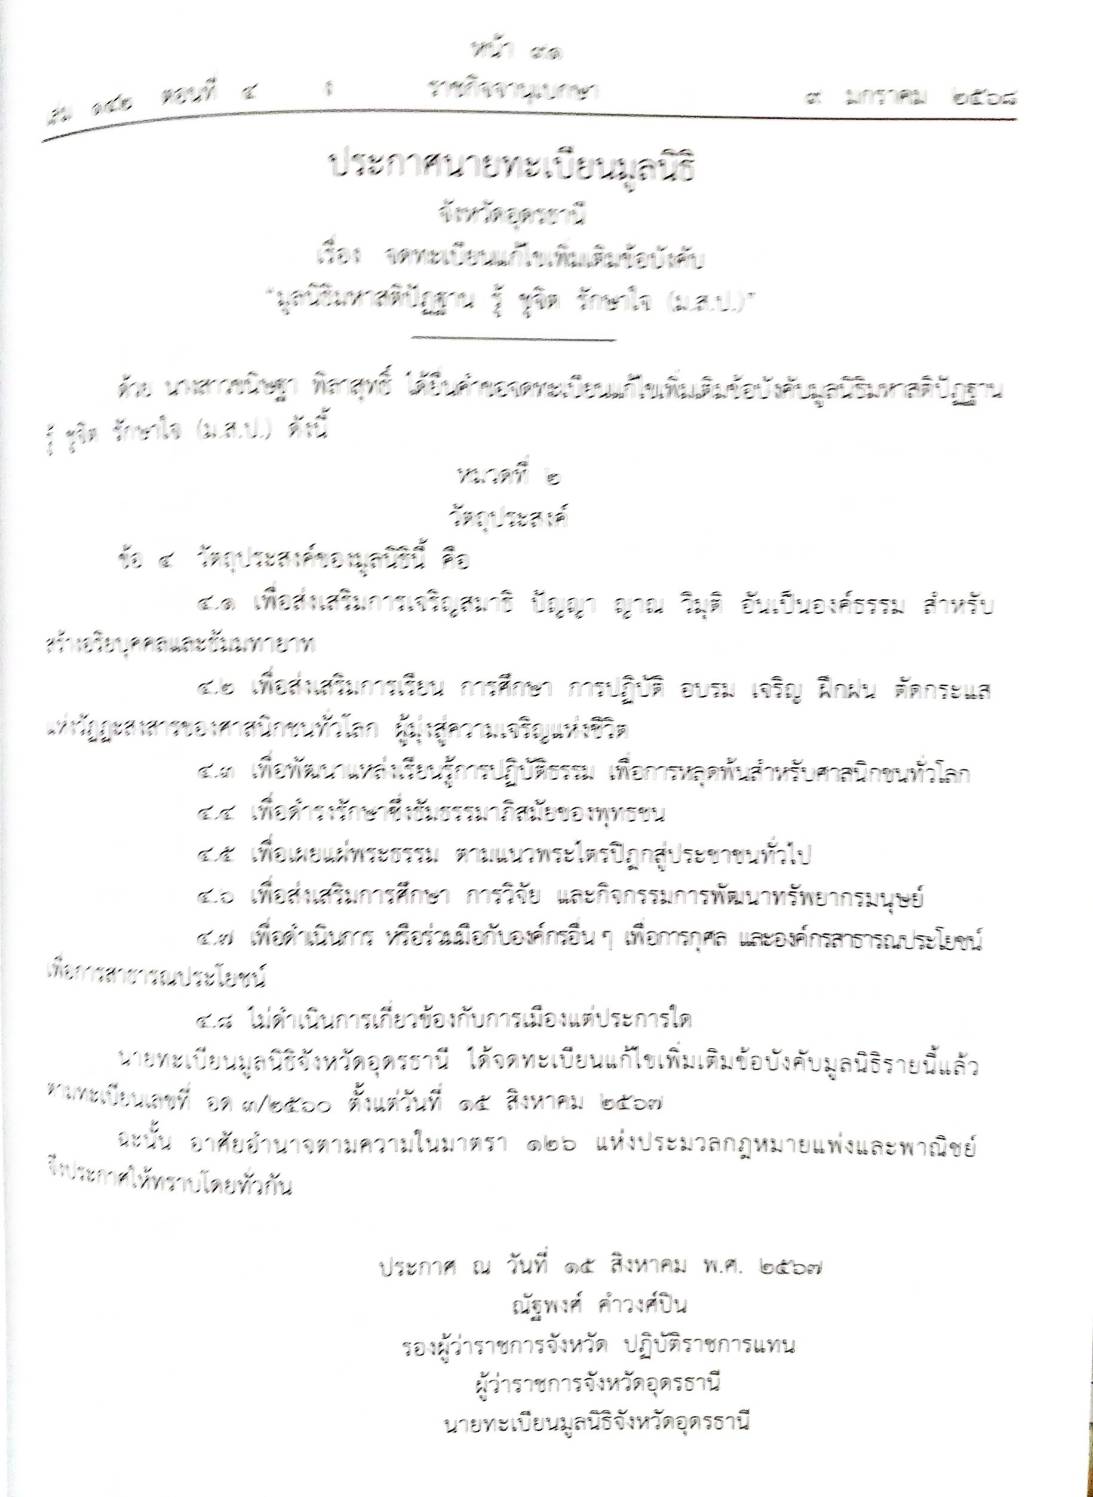 หน้า ๓๑
เล่ม ๑๔๒ ตอนที่ ๔ ง ราชกิจจานุเบกษา ๙ มกราคม ๒๕๖๘
ประกาศนายทะเบียนมูลนิธิ
จังหวัดอุดรธานี
เรื่อง จดทะเบียนแก้ไขเพิ่มเติมข้อบังคับ
“มูลนิธิมหาสติปัฏฐาน รู้ ชุจิต รักษาใจ (ม.ส.ป.)”
ด้วย นางสาวขนิษฐา พิลาสุทธิ์ ได้ยื่นคำขอจดทะเบียนแก้ไขเพิ่มเติมข้อบังคับมูลนิธิมหาสติปัฏฐาน
รู้ ชุจิต รักษาใจ (ม.ส.ป.) ดังนี้
หมวดที่ ๒
วัตถุประสงค์
ข้อ ๔ วัตถุประสงค์ของมูลนิธินี้ คือ
๔.๑ เพื่อส่งเสริมการเจริญสมาธิ ปัญญา ญาณ วิมุติ อันเป็นองค์ธรรม สำหรับ
สร้างอริยบุคคลและธัมมทายาท
๔.๒ เพื่อส่งเสริมการเรียน การศึกษา การปฏิบัติ อบรม เจริญ ฝึกฝน ตัดกระแส
แห่งวัฏฏะสงสารของศาสนิกชนทั่วโลก ผู้มุ่งสู่ความเจริญแห่งชีวิต
๔.๓ เพื่อพัฒนาแหล่งเรียนรู้การปฏิบัติธรรม เพื่อการหลุดพ้นสำหรับศาสนิกชนทั่วโลก
๔.๔ เพื่อดำรงรักษาซึ่งธัมธรรมาภิสมัยของพุทธชน
๔.๕ เพื่อเผยแผ่พระธรรม ตามแนวพระไตรปิฎกสู่ประชาชนทั่วไป
๔.๖ เพื่อส่งเสริมการศึกษา การวิจัย และกิจกรรมการพัฒนาทรัพยากรมนุษย์
๔.๗ เพื่อดำเนินการ หรือร่วมมือกับองค์กรอื่น ๆ เพื่อการกุศล และองค์กรสาธารณประโยชน์
เพื่อการสาธารณประโยชน์
๔.๘ ไม่ดำเนินการเกี่ยวข้องกับการเมืองแต่ประการใด
นายทะเบียนมูลนิธิจังหวัดอุดรธานี ได้จดทะเบียนแก้ไขเพิ่มเติมข้อบังคับมูลนิธิรายนี้แล้ว
ตามทะเบียนเลขที่ อด ๓/๒๕๖๐ ตั้งแต่วันที่ ๑๕ สิงหาคม ๒๕๖๗
ฉะนั้น อาศัยอำนาจตามความในมาตรา ๑๒๖ แห่งประมวลกฎหมายแพ่งและพาณิชย์
จึงประกาศให้ทราบโดยทั่วกัน
ประกาศ ณ วันที่ ๑๕ สิงหาคม พ.ศ. ๒๕๖๗
ณัฐพงศ์ คำวงศ์ปิน
รองผู้ว่าราชการจังหวัด ปฏิบัติราชการแทน
ผู้ว่าราชการจังหวัดอุดรธานี
นายทะเบียนมูลนิธิจังหวัดอุดรธานี